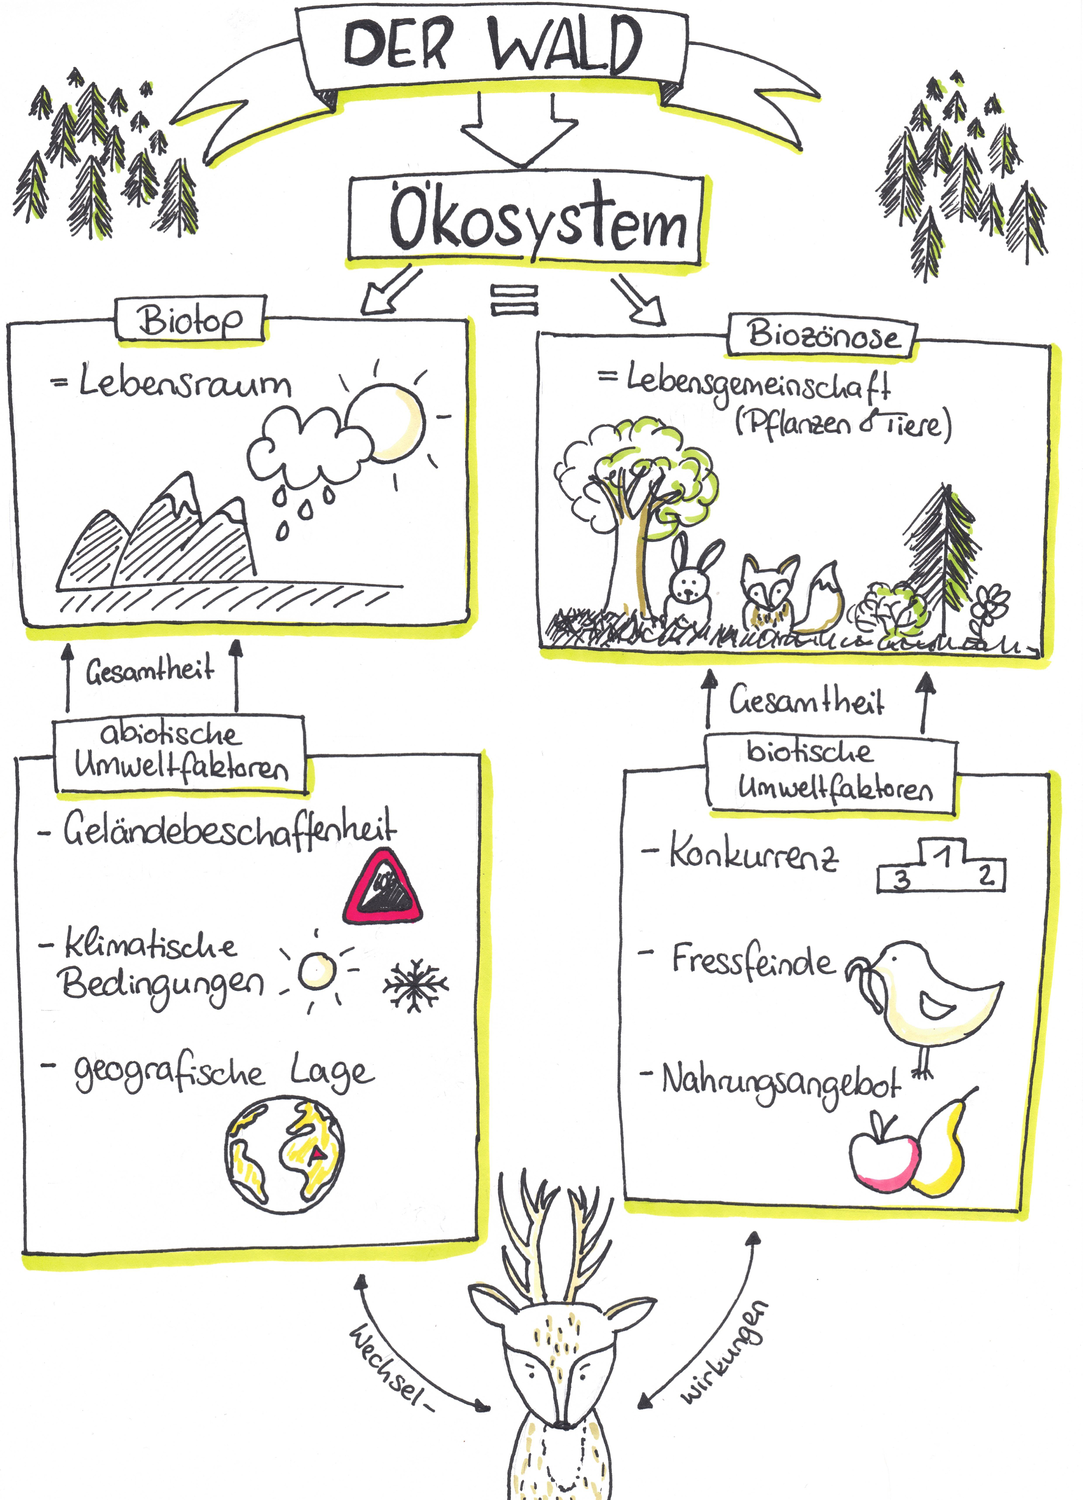 DER WALD
Ökosystem
=
Biotop
= Lebensraum
Biozönose
= Lebensgemeinschaft
(Pflanzen & Tiere)
Gesamtheit
abiotische
Umweltfaktoren
- Geländebeschaffenheit
- klimatische
Bedingungen
- geografische Lage
Gesamtheit
biotische
Umweltfaktoren
- Konkurrenz
1
3 2
- Fressfeinde
- Nahrungsangebot
Wechsel-
wirkungen